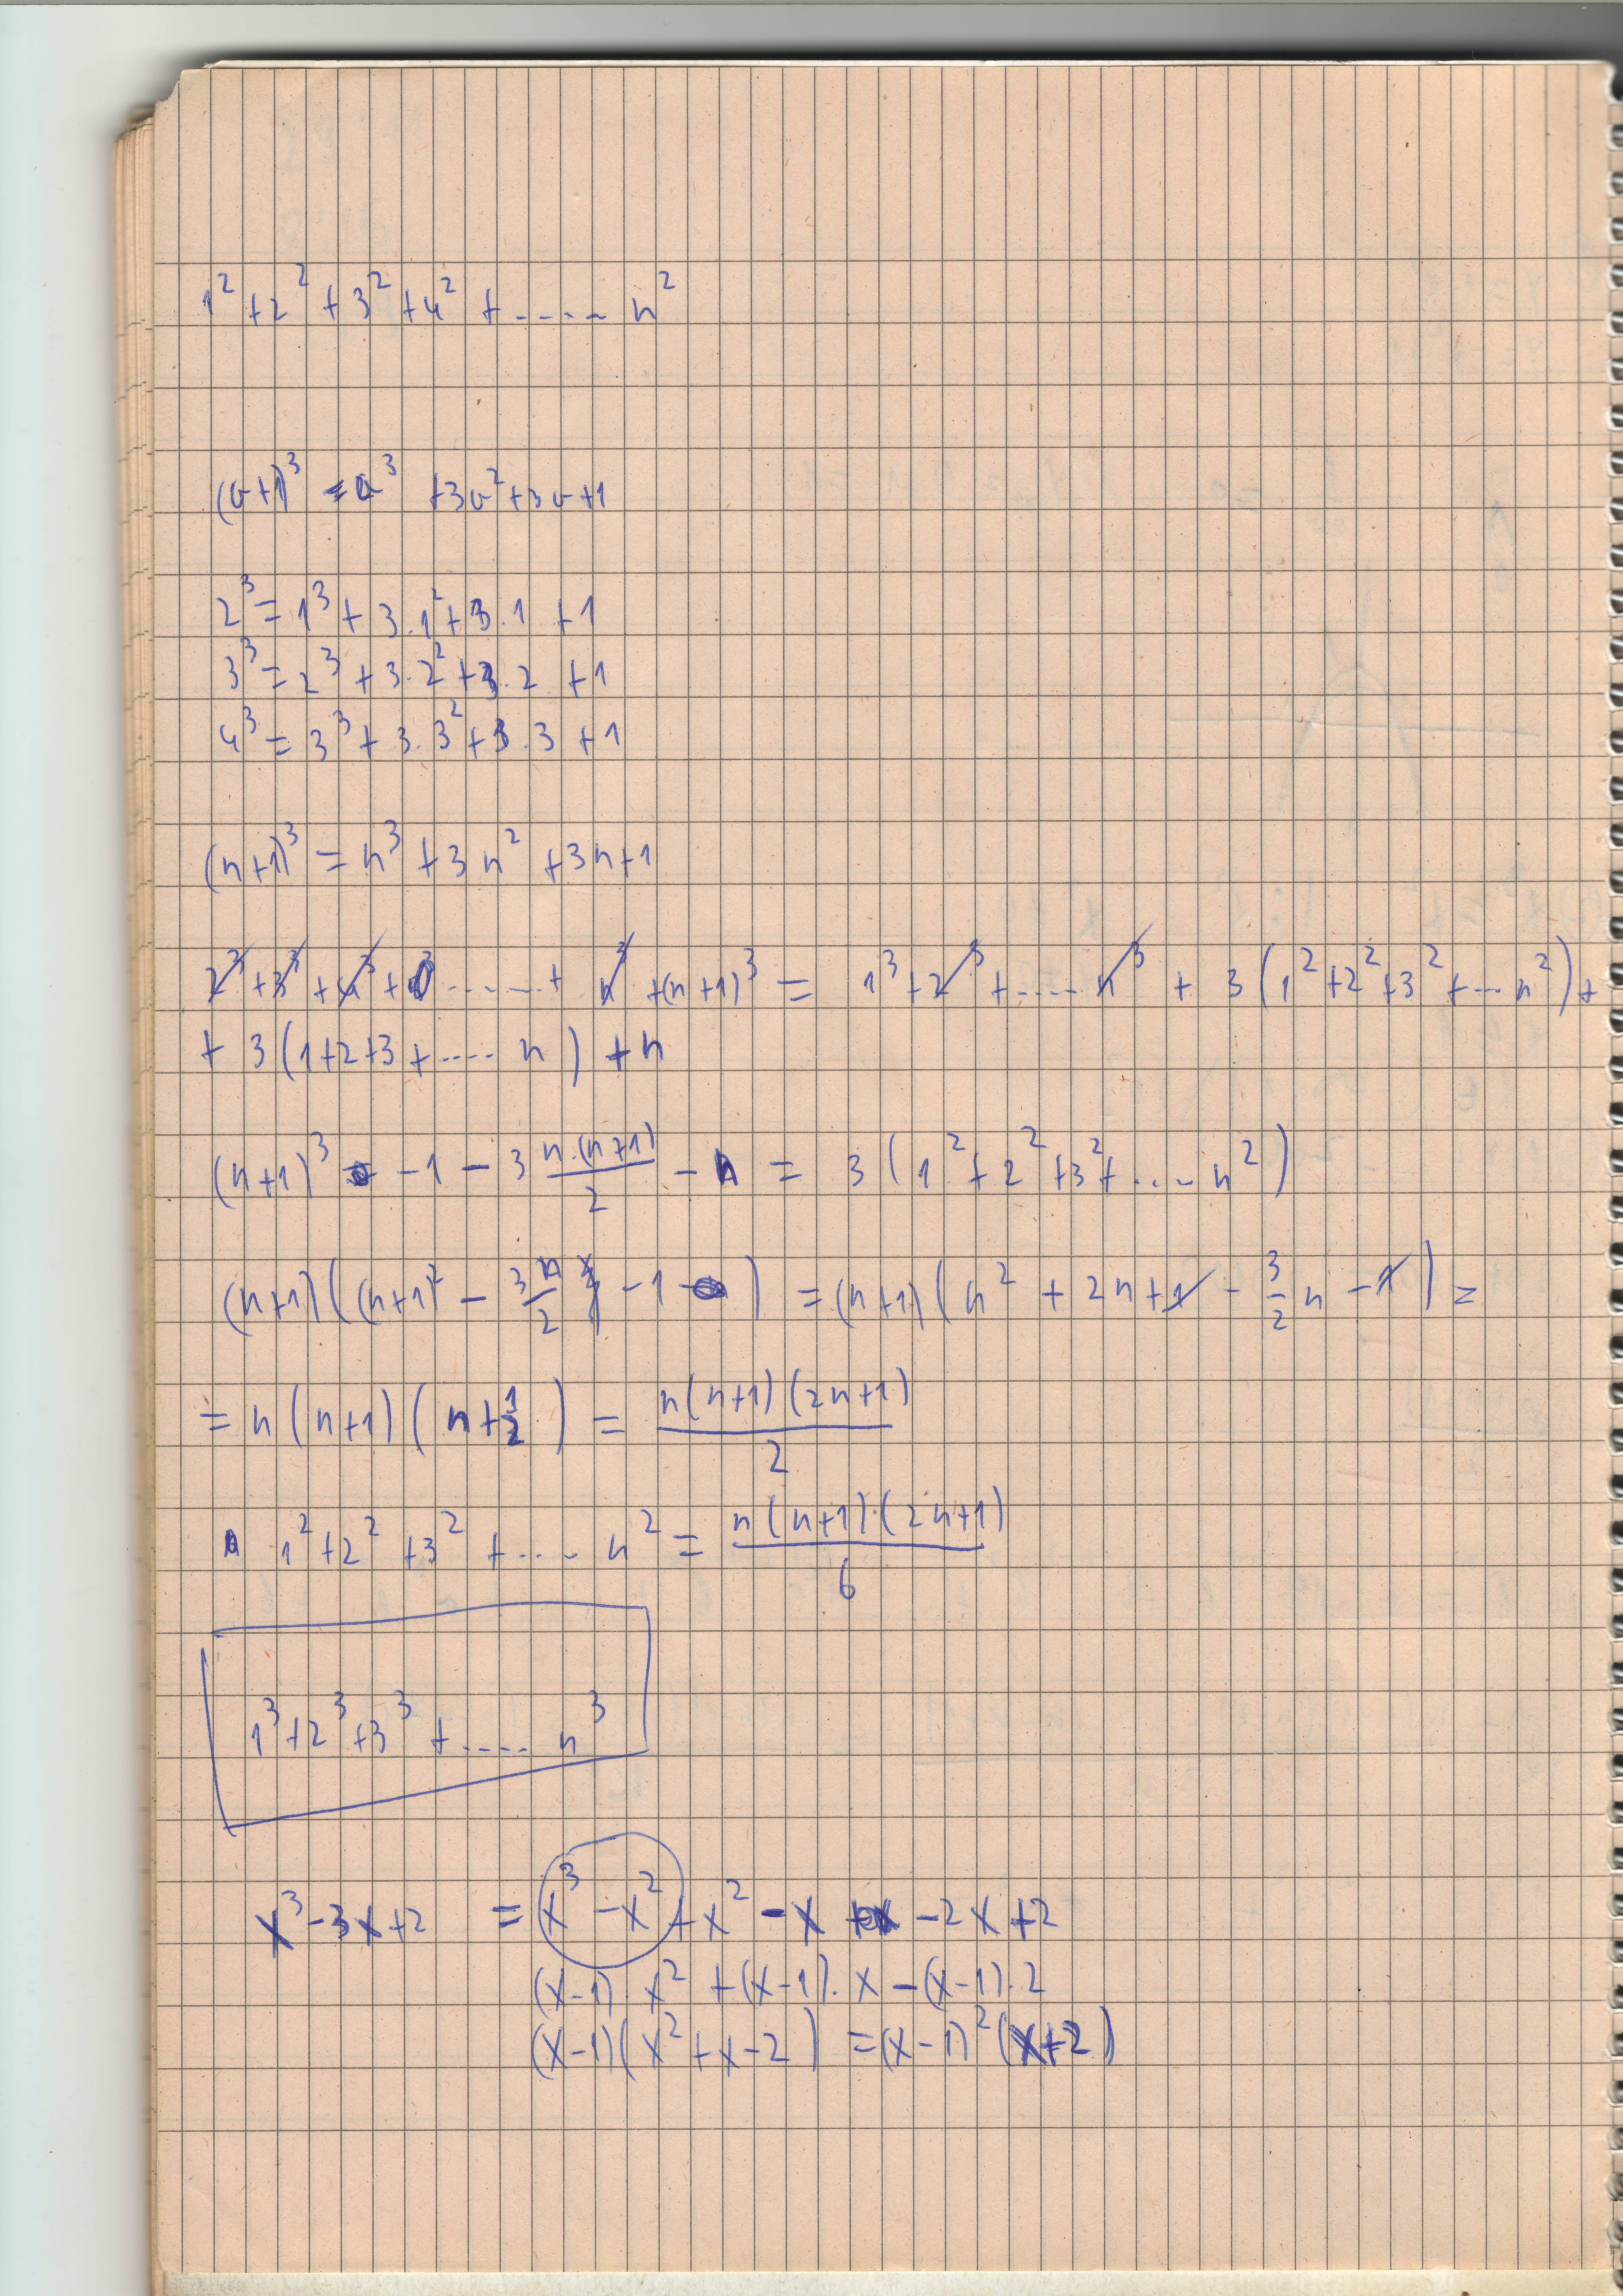 1² + 2² + 3² + 4² + ..... n²
(a+1)³ = a³ + 3a² + 3a + 1
2³ = 1³ + 3.1² + 3.1 + 1
3³ = 2³ + 3.2² + 3.2 + 1
4³ = 3³ + 3.3² + 3.3 + 1
(n+1)³ = n³ + 3n² + 3n + 1
2³ + 3³ + 4³ + ...... + n³ + (n+1)³ = 1³ + 2³ + .... n³ + 3(1² + 2² + 3² + ... n²) +
+ 3(1+2+3+ .... n) + n
(n+1)³ - 1 - 3 n.(n+1)/2 - n = 3(1² + 2² + 3² + ... n²)
(n+1)((n+1)² - 3n/2 - 1) = (n+1)(n² + 2n + 1 - 3/2 n - 1) =
= n(n+1)(n + 1/2) = n(n+1)(2n+1)/2
1² + 2² + 3² + .... n² = n(n+1).(2n+1)/6
1³ + 2³ + 3³ + .... n³
x³ - 3x + 2 = x³ - x² + x² - x - 2x + 2
(x-1).x² + (x-1).x - (x-1).2
(x-1)(x² + x - 2) = (x-1)²(x+2)